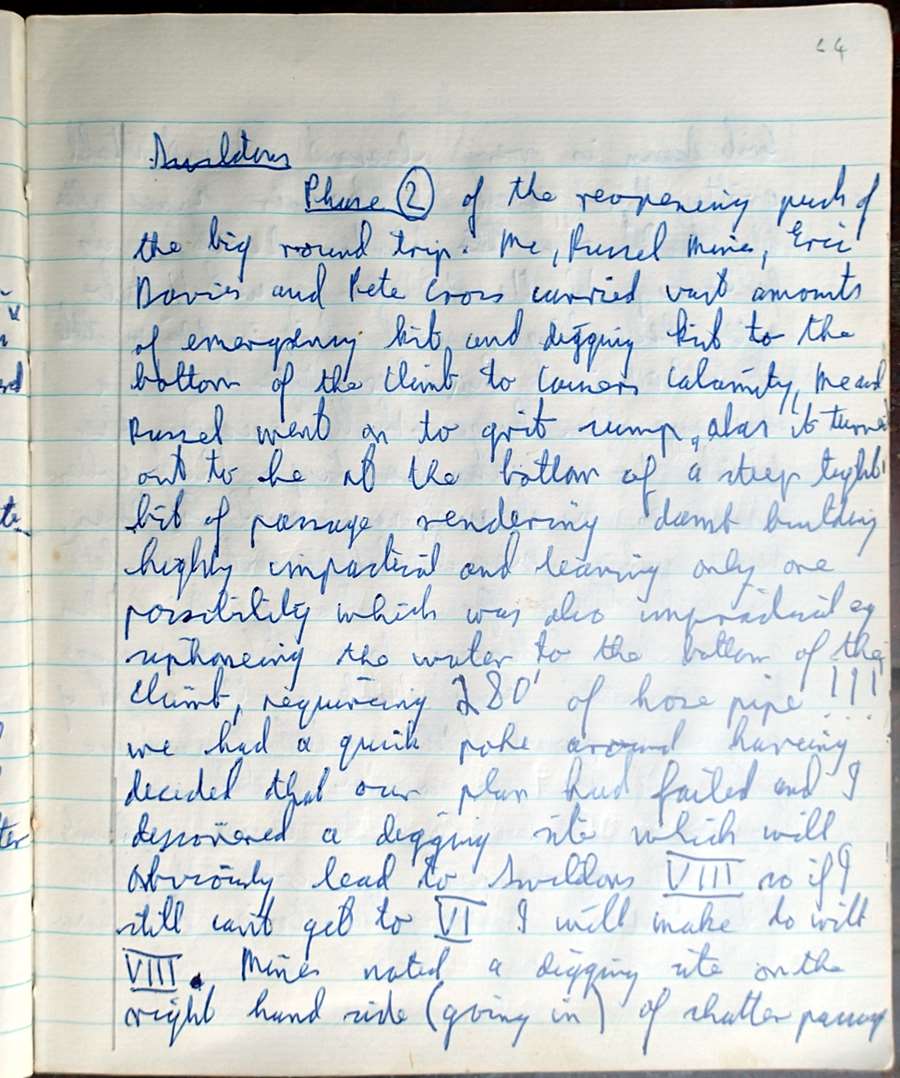 24
Swildons
Phase 2 of the reopening push of
the big round trip. Me, Russel Mines, Eric
Davies and Pete Cross carried vast amounts
of emergency kit and digging kit to the
bottom of the climb to Cowers Calamity, Me and
Russel went on to grit sump, alas it turned
out to be at the bottom of a steep tight
bit of passage rendering damb building
highly impactical and leaving only one
possibility which was also impractical eg
siphoneing the water to the bottom of the
climb, requireing 280' of hose pipe !!!
we had a quick poke around haveing
decided that our plan had failed and I
discovered a digging site which will
obviously lead to Swildons VIII so if I
still cant get to VI I will make do with
VIII. Mines noted a digging site on the
right hand side (going in) of shatter passage